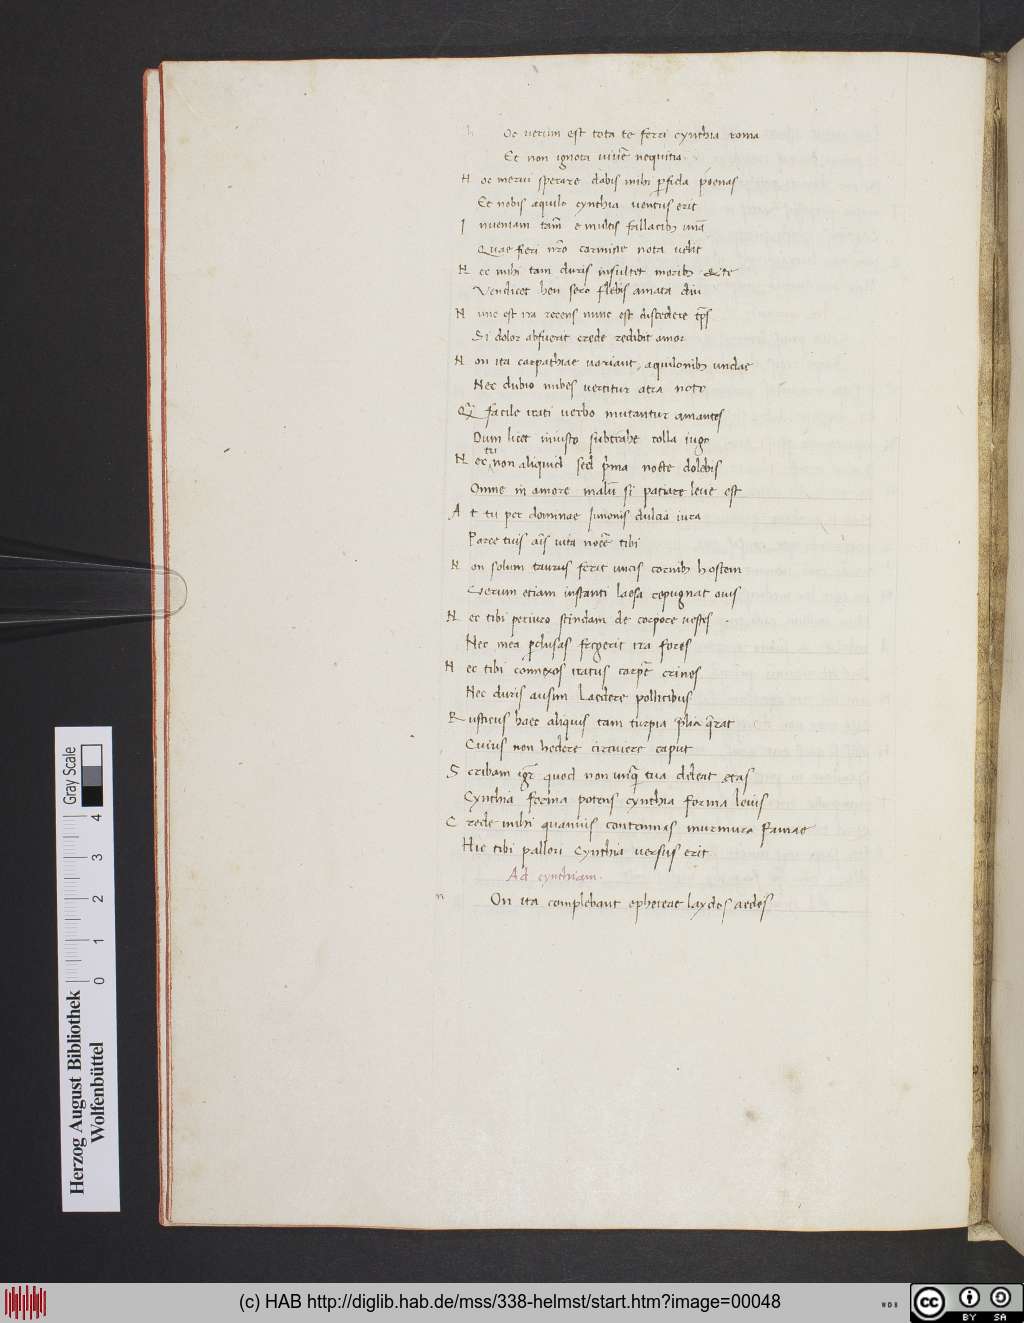 h oc uerum est tota te ferri cynthia roma
Et non ignota uiuẽ nequitia
H oc merui sperare dabis mihi pfida poenas
Et nobis aquilo cynthia uentus erit
I nueniam tam̃ e multis fallacibꝫ unã
Quae fieri nr̃o carmine nota uelit
N ec mihi tam duris insultet moribꝫ & te
Vendicet heu sero flebis amata diu
N unc est ira recens nunc est discedere tp̃s
Si dolor abfuerit crede redibit amor
N on ita carpathiae uariant aquilonibꝫ undae
Nec dubio nubes uertitur atra noto
Q̃ facile irati uerbo mutantur amantes
Dum licet iniusto subtrahe colla iugo
N ec tu non aliquid sed p̃ma nocte dolebis
Omne in amore malũ si patiare leue est
A t tu per dominae Iunonis dulcia iura
Parce tuis aĩs uita nocẽ tibi
N on solum taurus ferit uncis cornibꝫ hostem
Verum etiam instanti laesa repugnat ouis
N ec tibi periuro scindam de corpore uestes
Nec mea pclusas fregerit ira fores
N ec tibi connexos iratus carpẽ crines
Nec duris ausim Laedere pollicibus
R usticus haec aliquis tam turpia p̃lia q̃rat
Cuius non hedere circuiere caput
S cribam igr̃ quod non unq̃ tua deleat etas
Cynthia forma potens cynthia forma leuis
C rede mihi quamuis contemnas murmura famae
Hic tibi pallori Cynthia uersus erit
Ad cynthiam.
n On ita complebant ephereae laydes aedes
Herzog August Bibliothek
Wolfenbüttel
Gray Scale
0 1 2 3 4
(c) HAB http://diglib.hab.de/mss/338-helmst/start.htm?image=00048
WDB
cc BY SA